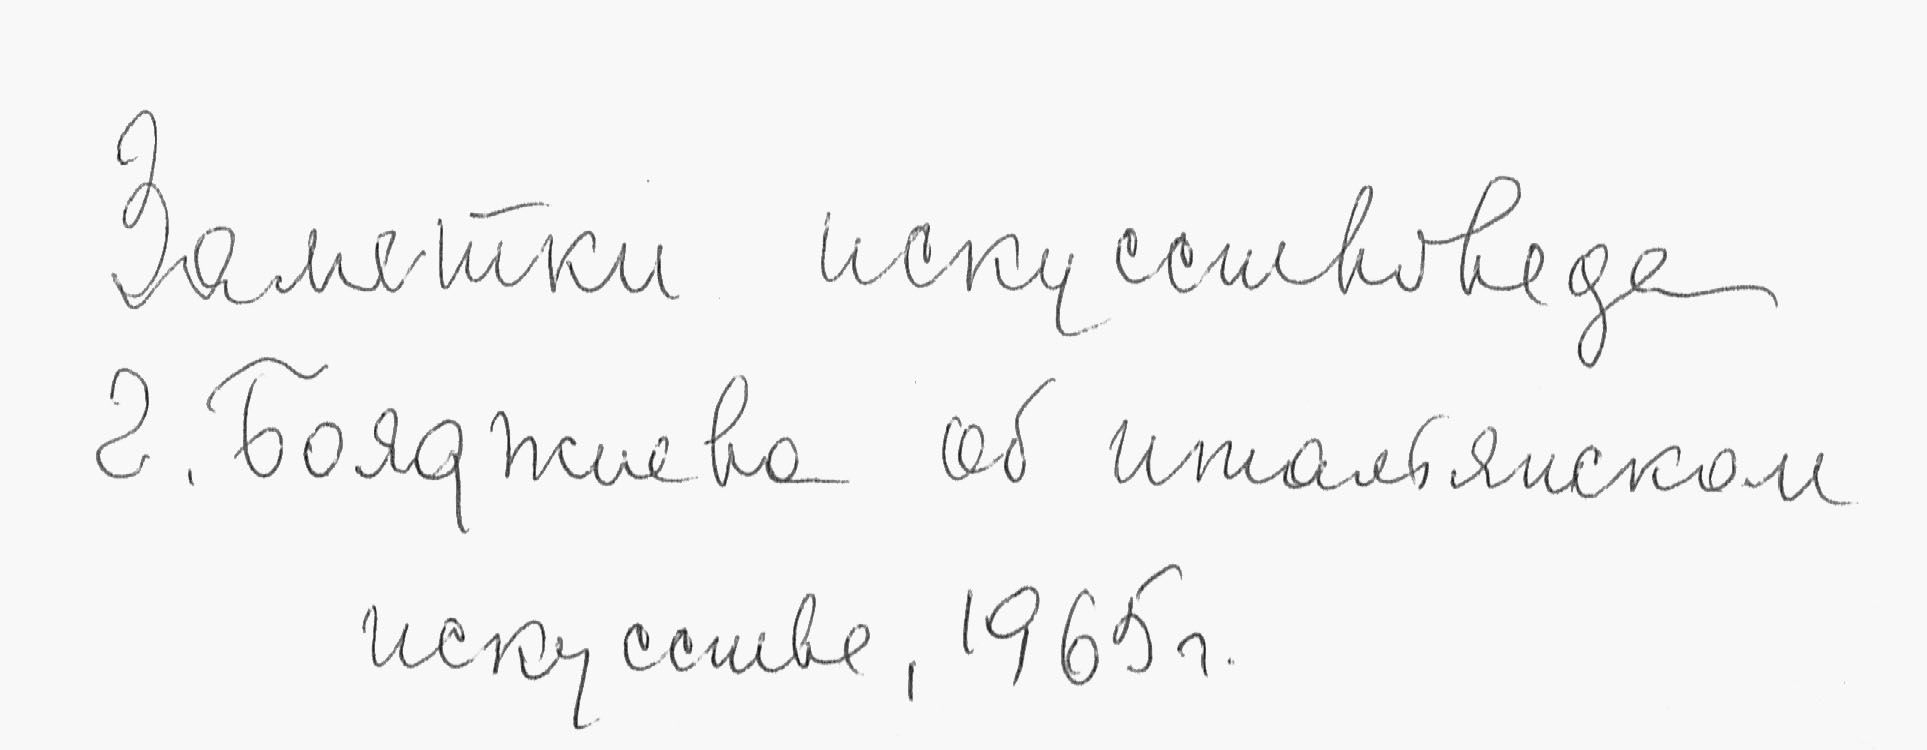 Заметки искусствоведа
Г. Бояджиева об итальянском
искусстве, 1965 г.